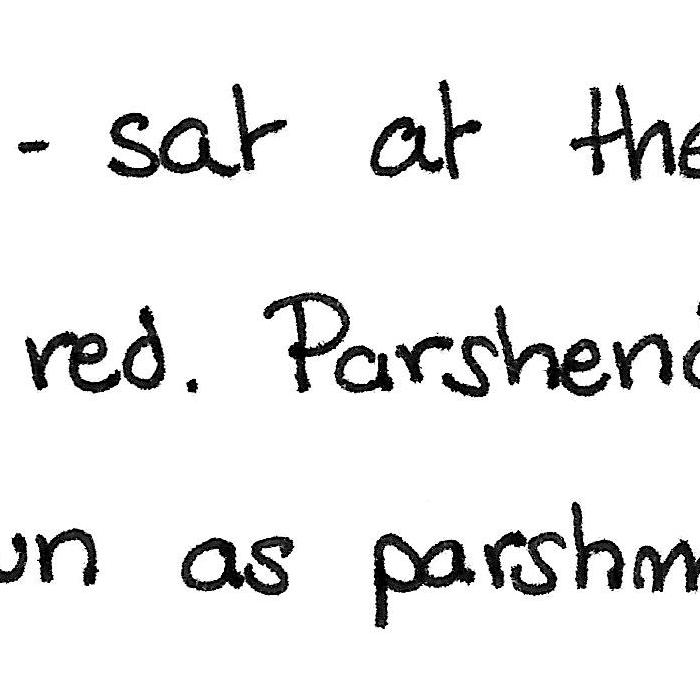 - sat at the
red. Parshend
wn as parshm